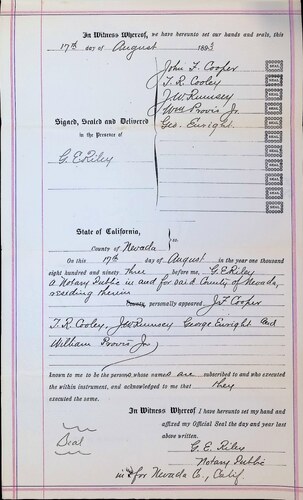 In Witness Whereof, we have hereunto set our hands and seals, this
17th day of August 1893
John F. Cooper
T. R. Cooley
J. W. Rumsey
Wm Provis Jr.
Geo. Enright.
Signed, Sealed and Delivered
in the Presence of
G. E. Riley
SEAL
SEAL
SEAL
SEAL
SEAL
SEAL
SEAL
SEAL
SEAL
SEAL
State of California,
County of Nevada } ss.
On this 17th day of August in the year one thousand
eight hundred and ninety three before me, G. E. Riley
a Notary Public in and for said County of Nevada,
residing therein
County, personally appeared J. F. Cooper
T. R. Cooley, J. W. Rumsey George Enright and
William Provis Jr.
known to me to be the persons whose names are subscribed to and who executed
the within instrument, and acknowledged to me that they
executed the same.
In Witness Whereof I have hereunto set my hand and
affixed my Official Seal the day and year last
above written.
Seal
G. E. Riley
Notary Public
in & for Nevada Co., Calif.